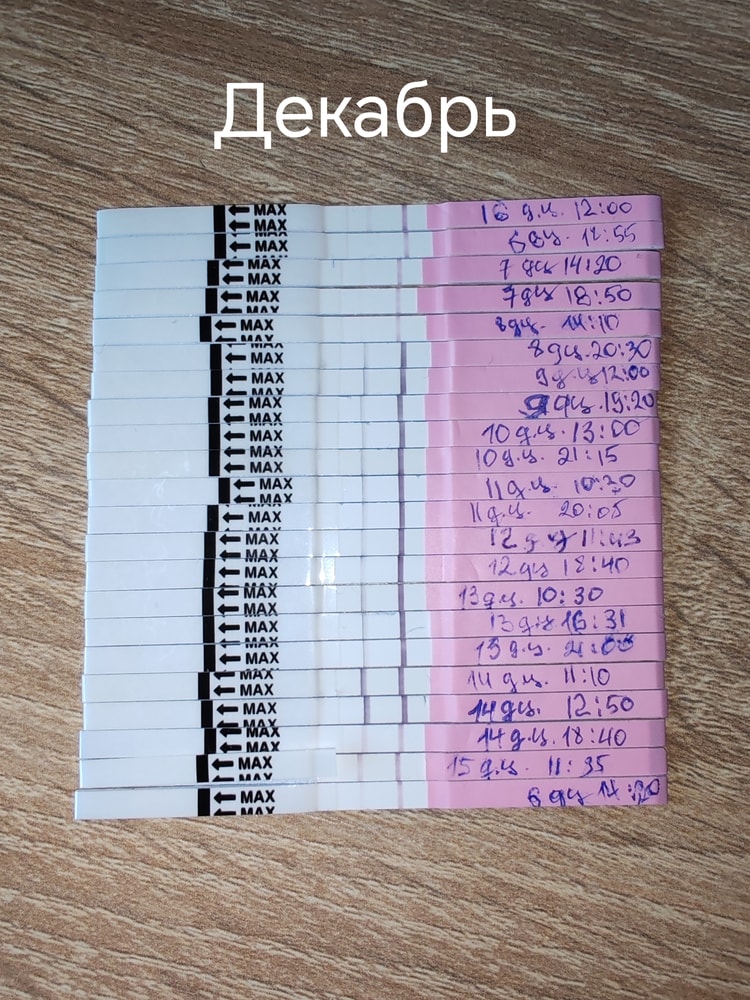 Декабрь
← MAX 16 д.ц. 12:00
← MAX
← MAX 6 дц. 12:55
← MAX 7 дц 14:20
← MAX
← MAX 7 дц 18:50
← MAX 8 дц. 14:10
← MAX 8 дц. 20:30
← MAX 9 д.ц 12:00
← MAX 9 дц. 19:20
← MAX 10 д.ц. 13:00
← MAX 10 д.ц. 21:15
← MAX 11 д.ц. 10:20
← MAX
← MAX 11 д.ц. 20:05
← MAX 12 11:43
← MAX 12 дц 18:40
← MAX 13 д.ц. 10:30
← MAX 13 д.ц 16:31
← MAX 13 д.ц. 21:00
← MAX 14 д.ц. 11:10
← MAX 14 дц. 12:50
← MAX 14 д.ц. 18:40
← MAX 15 д.ц. 11:35
← MAX 6 дц 14:20